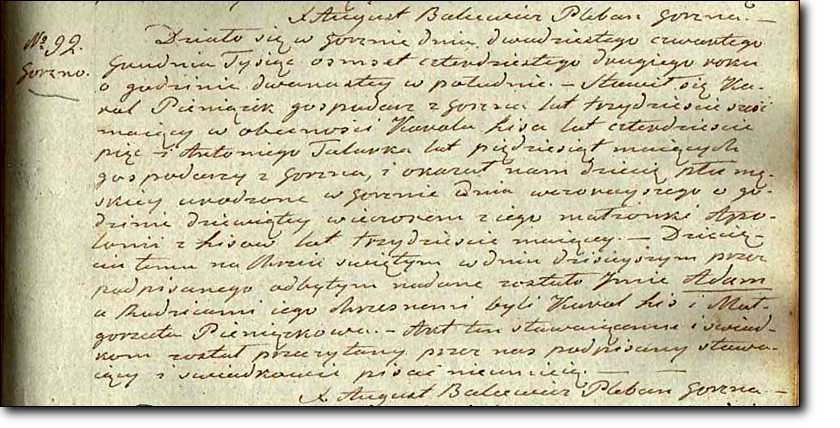 X August Balcewicz Pleban Gorzna. —
No 92.
Gorzno.
Działo się w Gorznie dnia dwudziestego czwartego
Grudnia Tysiąc osmset czterdziestego drugiego roku
o godzinie dwunastey w południe. — Stawił się Ka-
rol Pieniązek gospodarz z Gorzna lat trzydziescie szesć
maiący w obecności Karola Kisa lat czterdziescie
pięc i Antoniego Talarka lat pięcdziesiąt maiących
gospodarzy z Gorzna, i okazał nam dziecię płci mę-
skiey urodzone w Gorznie dnia wczorayszego o go-
dzinie dziewiątey wieczorem z iego małzonki Apo-
lonii z Kisow lat trzydziescie maiącey. — Dziecię-
ciu temu na Chrzcie swiętym w dniu dzisieyszym przez
podpisanego odbytym nadane zostało Imie Adam
a Rodzicami iego chrzesnemi byli Karol Kis i Mał-
gorzata Pieniązkowa. — Akt ten stawaiącemu i swiad-
kom został przeczytany przez nas podpisany stawa-
iący i swiadkowie pisać nieumieią. —
X August Balcewicz Pleban Gorzna —